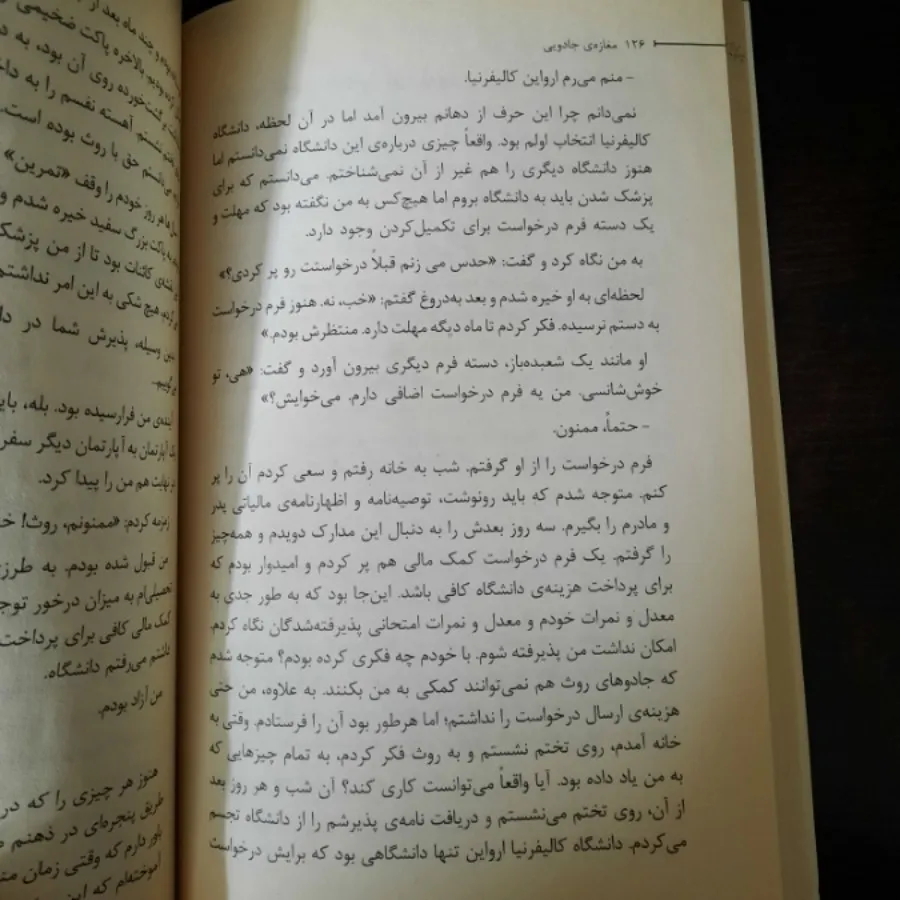 ۱۲۶ مغازه‌ی جادویی
– منم می‌رم ارواین کالیفرنیا.
نمی‌دانم چرا این حرف از دهانم بیرون آمد اما در آن لحظه، دانشگاه
کالیفرنیا انتخاب اولم بود. واقعاً چیزی درباره‌ی این دانشگاه نمی‌دانستم اما
هنوز دانشگاه دیگری را هم غیر از آن نمی‌شناختم. می‌دانستم که برای
پزشک شدن باید به دانشگاه بروم اما هیچ‌کس به من نگفته بود که مهلت و
یک دسته فرم درخواست برای تکمیل‌کردن وجود دارد.
به من نگاه کرد و گفت: «حدس می زنم قبلاً درخواستت رو پر کردی؟»
لحظه‌ای به او خیره شدم و بعد به‌دروغ گفتم: «خب، نه. هنوز فرم درخواست
به دستم نرسیده. فکر کردم تا ماه دیگه مهلت داره. منتظرش بودم.»
او مانند یک شعبده‌باز، دسته فرم دیگری بیرون آورد و گفت: «هی، تو
خوش‌شانسی. من یه فرم درخواست اضافی دارم. می‌خوایش؟»
– حتماً، ممنون.
فرم درخواست را از او گرفتم. شب به خانه رفتم و سعی کردم آن را پر
کنم. متوجه شدم که باید رونوشت، توصیه‌نامه و اظهارنامه‌ی مالیاتی پدر
و مادرم را بگیرم. سه روز بعدش را به دنبال این مدارک دویدم و همه‌چیز
را گرفتم. یک فرم درخواست کمک مالی هم پر کردم و امیدوار بودم که
برای پرداخت هزینه‌ی دانشگاه کافی باشد. این‌جا بود که به طور جدی به
معدل و نمرات خودم و معدل و نمرات امتحانی پذیرفته‌شدگان نگاه کردم.
امکان نداشت من پذیرفته شوم. با خودم چه فکری کرده بودم؟ متوجه شدم
که جادوهای روث هم نمی‌توانند کمکی به من بکنند. به علاوه، من حتی
هزینه‌ی ارسال درخواست را نداشتم؛ اما هرطور بود آن را فرستادم. وقتی به
خانه آمدم، روی تختم نشستم و به روث فکر کردم، به تمام چیزهایی که
به من یاد داده بود. آیا واقعاً می‌توانست کاری کند؟ آن شب و هر روز بعد
از آن، روی تختم می‌نشستم و دریافت نامه‌ی پذیرشم را از دانشگاه تجسم
می‌کردم. دانشگاه کالیفرنیا ارواین تنها دانشگاهی بود که برایش درخواست
و چند ماه بعد از
بودیم. بالاخره پاکت ضخیمی
گشت‌خورده روی آن بود، به
نشستم آهسته نفسم را به
حق با روث بوده است.
هر روز خودم را وقف «تمرین»
به پاکت بزرگ سفید خیره شدم و
کائنات بود تا از من پزشک
کردم، هیچ شکی به این امر نداشتم
وسیله، پذیرش شما در
می‌گوییم...
آینده‌ی من فرارسیده بود. بله،
یک آپارتمان به آپارتمان دیگر سفر
در نهایت هم من را پیدا کرد.
زمزمه کردم: «ممنونم، روث!
من قبول شده بودم. به طرز
تحصیلی‌ام به میزان درخور
کمک مالی کافی برای پرداخت
داشتم می‌رفتم دانشگاه.
من آزاد بودم.
هنوز هر چیزی را که در
طریق پنجره‌ای در ذهنم
باور دارم که وقتی زمان
آموخته‌ام که این